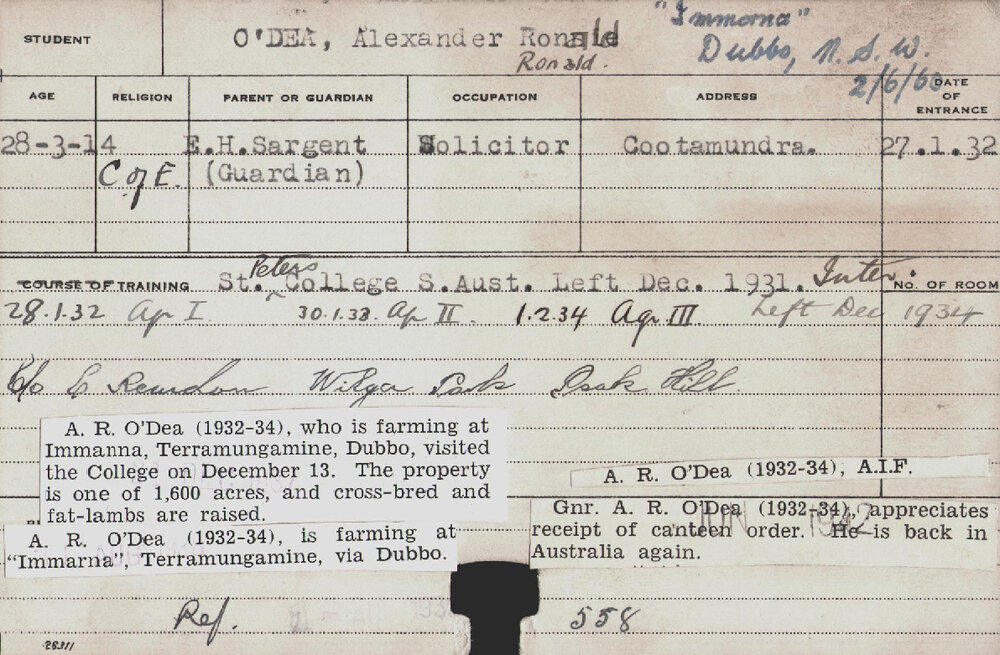 STUDENT
O'DEA, Alexander Ronald
Ronald.
"Immorna"
Dubbo, N.S.W.
2/6/60
AGE
RELIGION
PARENT OR GUARDIAN
OCCUPATION
ADDRESS
DATE OF ENTRANCE
28-3-14
C of E.
E.H.Sargent
(Guardian)
Solicitor
Cootamundra.
27.1.32
COURSE OF TRAINING
St. Peters College S.Aust. Left Dec. 1931. Inter.
NO. OF ROOM
28.1.32 Ag I. 30.1.33. Ag II. 1.2.34 Agr III Left Dec 1934
C/o Wilga Park Hill.
A. R. O'Dea (1932-34), who is farming at
Immanna, Terramungamine, Dubbo, visited
the College on December 13. The property
is one of 1,600 acres, and cross-bred and
fat-lambs are raised.
A. R. O'Dea (1932-34), is farming at
"Immarna", Terramungamine, via Dubbo.
A. R. O'Dea (1932-34), A.I.F.
Gnr. A. R. O'Dea (1932-34), appreciates
receipt of canteen order. He is back in
Australia again.
JUN 1942
Ref.
558
26311